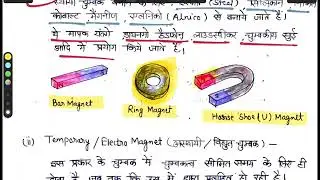 स्थायी चुम्बक बनाने के लिए स्टील (Steel) सिलिकॉन
कोबाल्ट मैंगनीज एल्निको (Alnico) से बनाये जाते है।
ये मापक यंत्रो हेडफोन, लाउडस्पीकर चुम्बकीय सुई
आदि में प्रयोग किये जाते है।
Bar Magnet
Ring Magnet
Horse Shoe (U) Magnet
(ii) Temporary / Electro Magnet (अस्थायी / विद्युत चुम्बक) –
इस प्रकार के चुम्बक में चुम्बकत्व सीमित समय के लिए ही
होता है, जब तक कि उस में धारा प्रवाहित हो रही है।